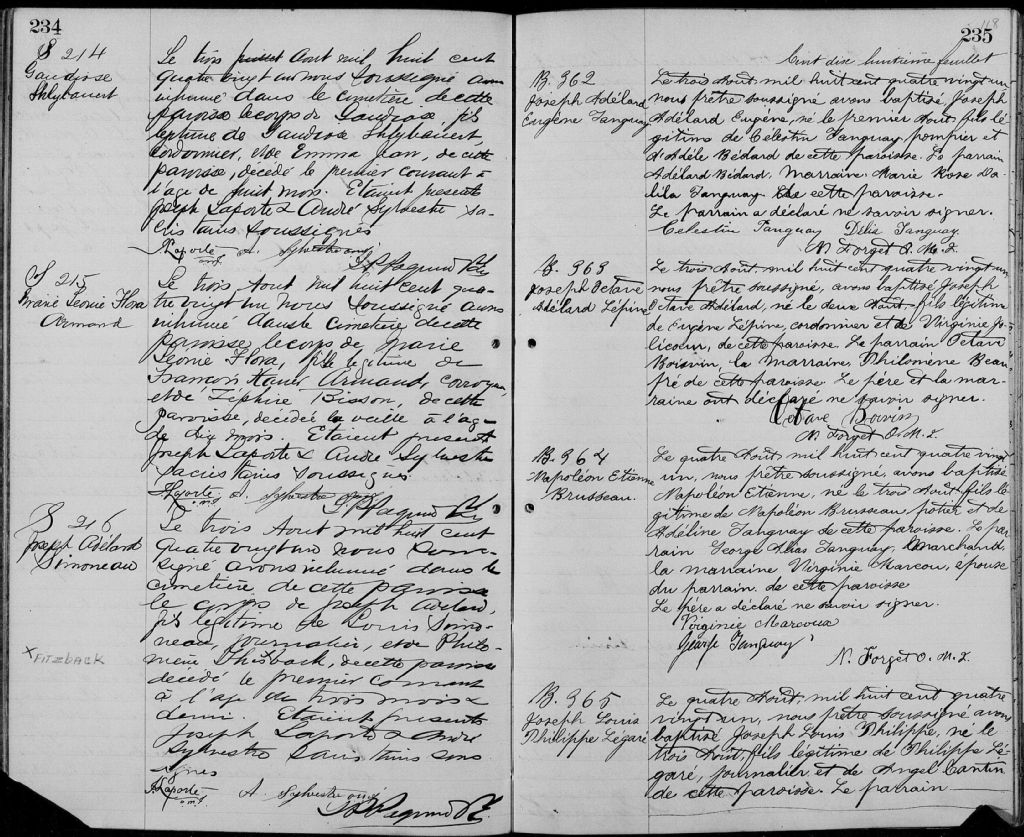 234
S 214
Gaudiose
Le trois juillet Aout mil huit cent
quatre vingt un nous soussigné avons
inhumé dans le cimetière de cette
paroisse le corps de Gaudiose, fils
légitime de Gaudiose
cordonnier, et de Emma Jean, de cette
paroisse, décédé le premier courant à
l'age de huit mois. Etaient presents
Joseph Laporte & André Sylvestre sa-
cristains soussignés
J Laporte A. Sylvestre
S 215
Marie Leonie Flora
Armand
Le trois Aout mil huit cent qua-
tre vingt un nous soussigné avons
inhumé dans le cimetière de cette
paroisse le corps de Marie
Léonie Flora, fille légitime de
François Armand,
et de Zéphire Bisson, de cette
paroisse, décédée la veille à l'age
de dix mois. Etaient presents
Joseph Laporte & André Sylvestre
sacristains soussignés
J Laporte A. Sylvestre
S 216
Joseph Adélard
Simoneau
Le trois Aout mil huit cent
quatre vingt un nous sous-
signé avons inhumé dans le
cimetière de cette paroisse
le corps de Joseph Adélard,
fils légitime de Louis Simo-
neau, journalier, et de Philo-
mène de cette paroisse
décédé le premier courant
à l'age de trois mois &
demi. Etaient presents
Joseph Laporte & André
Sylvestre sacristains sous-
signés
x FITZBACK
J Laporte A. Sylvestre
118
235
Cent dix huitième feuillet
B. 362
Joseph Adélard
Eugène Tanguay
Le trois Aout, mil huit cent quatre vingt un
nous prêtre soussigné avons baptisé, Joseph
Adélard Eugène, né le premier Aout fils lé-
gitime de Célestin Tanguay, pompier et
d'Adèle Bédard de cette paroisse. Le parrain
Adélard Bédard, Marraine Marie Rose Da-
lila Tanguay de cette paroisse.
Le parrain a déclaré ne savoir signer.
Celestin Tanguay Délia Tanguay
N. Forget O. M. I.
B. 363
Joseph Octave
Adélard Lépine
Le trois Aout, mil huit cent quatre vingt un
nous prêtre soussigné, avons baptisé Joseph
Octave Adélard, né le deux Aout, fils légitime
de Eugène Lépine, cordonnier et de Virginie Jo-
licoeur, de cette paroisse. Le parrain Octave
Boisvin, la Marraine, Philomène Beau-
pré de cette paroisse. Le père et la mar-
raine ont déclaré ne savoir signer.
Octave Boivin
N. Forget O. M. I.
B. 364
Napoléon Etienne
Brusseau.
Le quatre Aout, mil huit cent quatre vingt
un, nous prêtre soussigné, avons baptisé
Napoléon Etienne, né le trois Aout fils lé-
gitime de Napoléon Brusseau, potier et de
Adéline Tanguay de cette paroisse. Le par-
rain George Elias Tanguay, Marchand,
la marraine Virginie Marcou, épouse
du parrain, de cette paroisse
Le père a déclaré ne savoir signer.
Virginie Marcoux
George Tanguay
N. Forget O. M. I.
B. 365
Joseph Louis
Philippe Légaré
Le quatre Aout, mil huit cent quatre
vingt un, nous prêtre soussigné avons
baptisé Joseph Louis Philippe, né le
trois Aout, fils légitime de Philippe Lé-
garé, journalier et de Angel Cantin
de cette paroisse. Le parrain